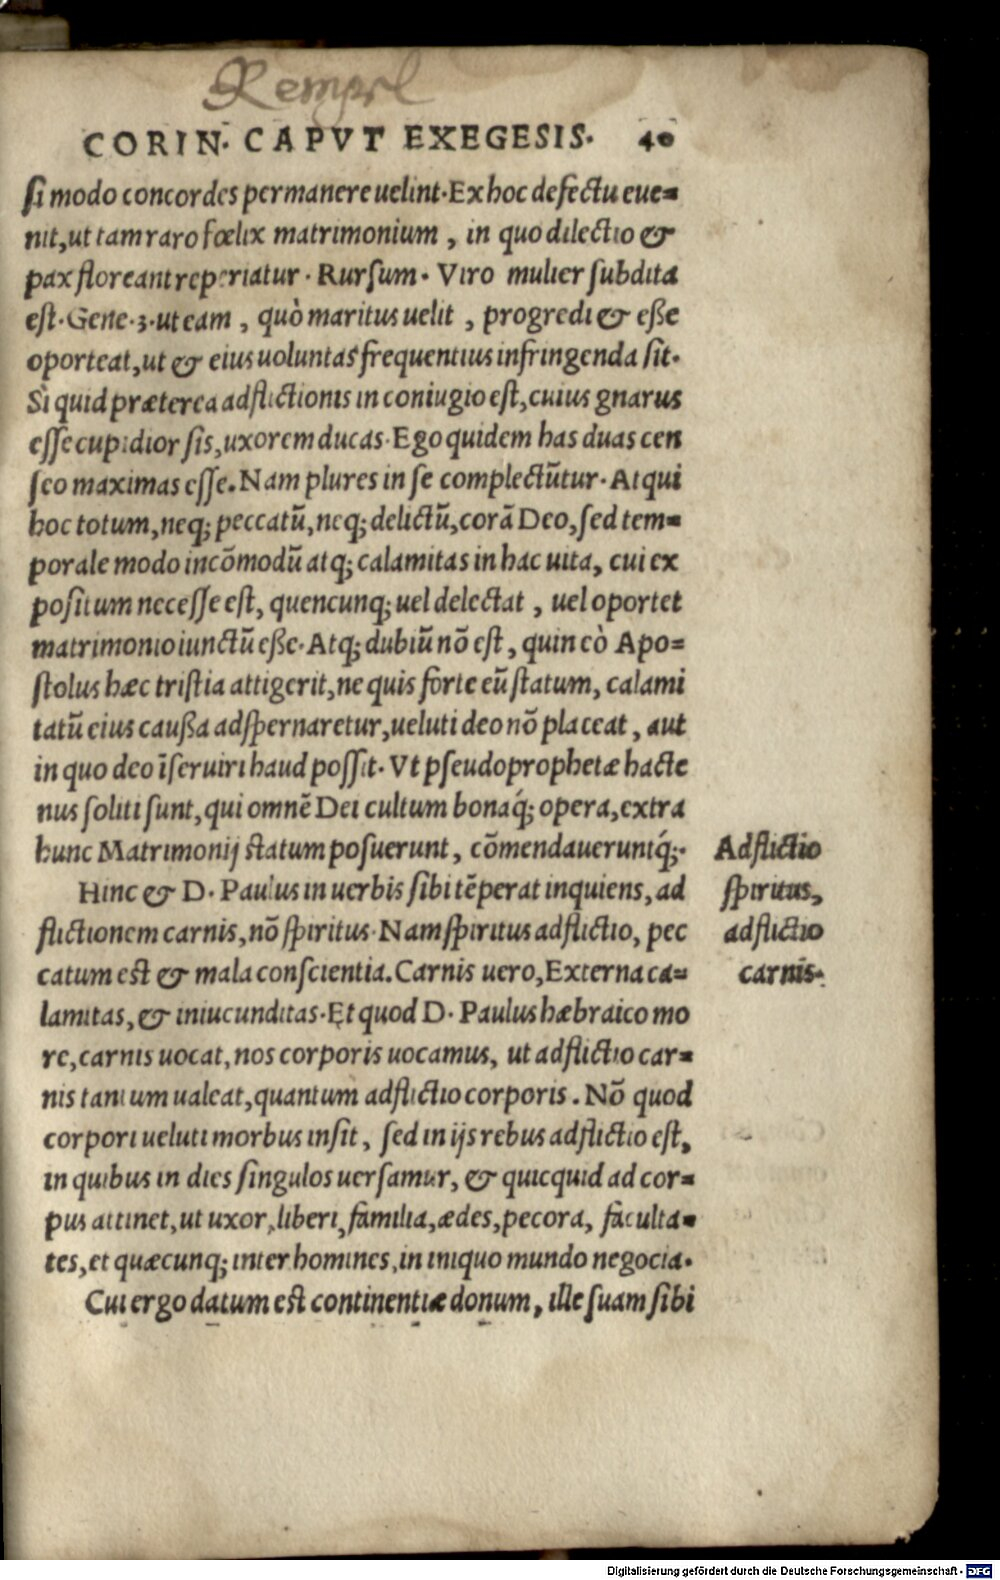 CORIN. CAPVT EXEGESIS. 40
si modo concordes permanere uelint. Ex hoc defectu eue=
nit, ut tam raro fœlix matrimonium, in quo dilectio &
pax floreant reperiatur. Rursum. Viro mulier subdita
est. Gene. 3. ut eam, quò maritus uelit, progredi & esse
oporteat, ut & eius uoluntas frequentius infringenda sit.
Si quid præterea adflictionis in coniugio est, cuius gnarus
esse cupidior sis, uxorem ducas. Ego quidem has duas cen
seo maximas esse. Nam plures in se complectũtur. Atqui
hoc totum, neq; peccatũ, neq; delictũ, corã Deo, sed tem=
porale modo incõmodũ atq; calamitas in hac uita, cui ex
positum necesse est, quencunq; uel delectat, uel oportet
matrimonio iunctũ esse. Atq; dubiũ nõ est, quin eò Apo=
stolus hæc tristia attigerit, ne quis forte eũ statum, calami
tatũ eius caussa adspernaretur, ueluti deo nõ placeat, aut
in quo deo ĩseruiri haud possit. Vt pseudoprophetæ hacte
nus soliti sunt, qui omnẽ Dei cultum bonaq́; opera, extra
hunc Matrimonij statum posuerunt, cõmendaueruntq́;.
Hinc & D. Paulus in uerbis sibi tẽperat inquiens, ad
flictionem carnis, nõ spiritus. Nam spiritus adflictio, pec
catum est & mala conscientia. Carnis uero, Externa ca=
lamitas, & iniucunditas. Et quod D. Paulus hæbraico mo
re, carnis uocat, nos corporis uocamus, ut adflictio car=
nis tantum ualeat, quantum adflictio corporis. Nõ quod
corpori ueluti morbus insit, sed in ijs rebus adflictio est,
in quibus in dies singulos uersamur, & quicquid ad cor=
pus attinet, ut uxor, liberi, familia, ædes, pecora, faculta=
tes, et quæcunq; inter homines, in iniquo mundo negocia.
Cui ergo datum est continentiæ donum, ille suam sibi
Adflictio
spiritus,
adflictio
carnis.
Digitalisierung gefördert durch die Deutsche Forschungsgemeinschaft - DFG